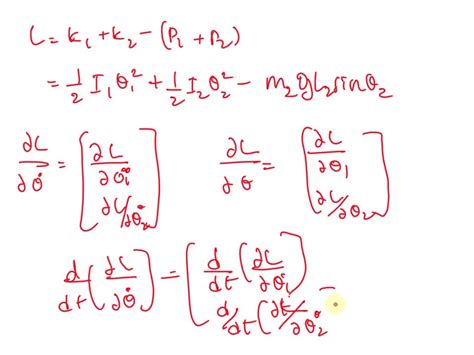 L = K₁ + K₂ - (P₁ + P₂)
= 1/2 I₁ θ̇₁² + 1/2 I₂ θ̇₂² - m₂ g L₂ sin θ₂
∂L/∂θ̇ = [∂L/∂θ̇₁ ∂L/∂θ̇₂] ∂L/∂θ = [∂L/∂θ₁ ∂L/∂θ₂]
d/dt (∂L/∂θ̇) = [d/dt (∂L/∂θ̇₁) d/dt (∂L/∂θ̇₂